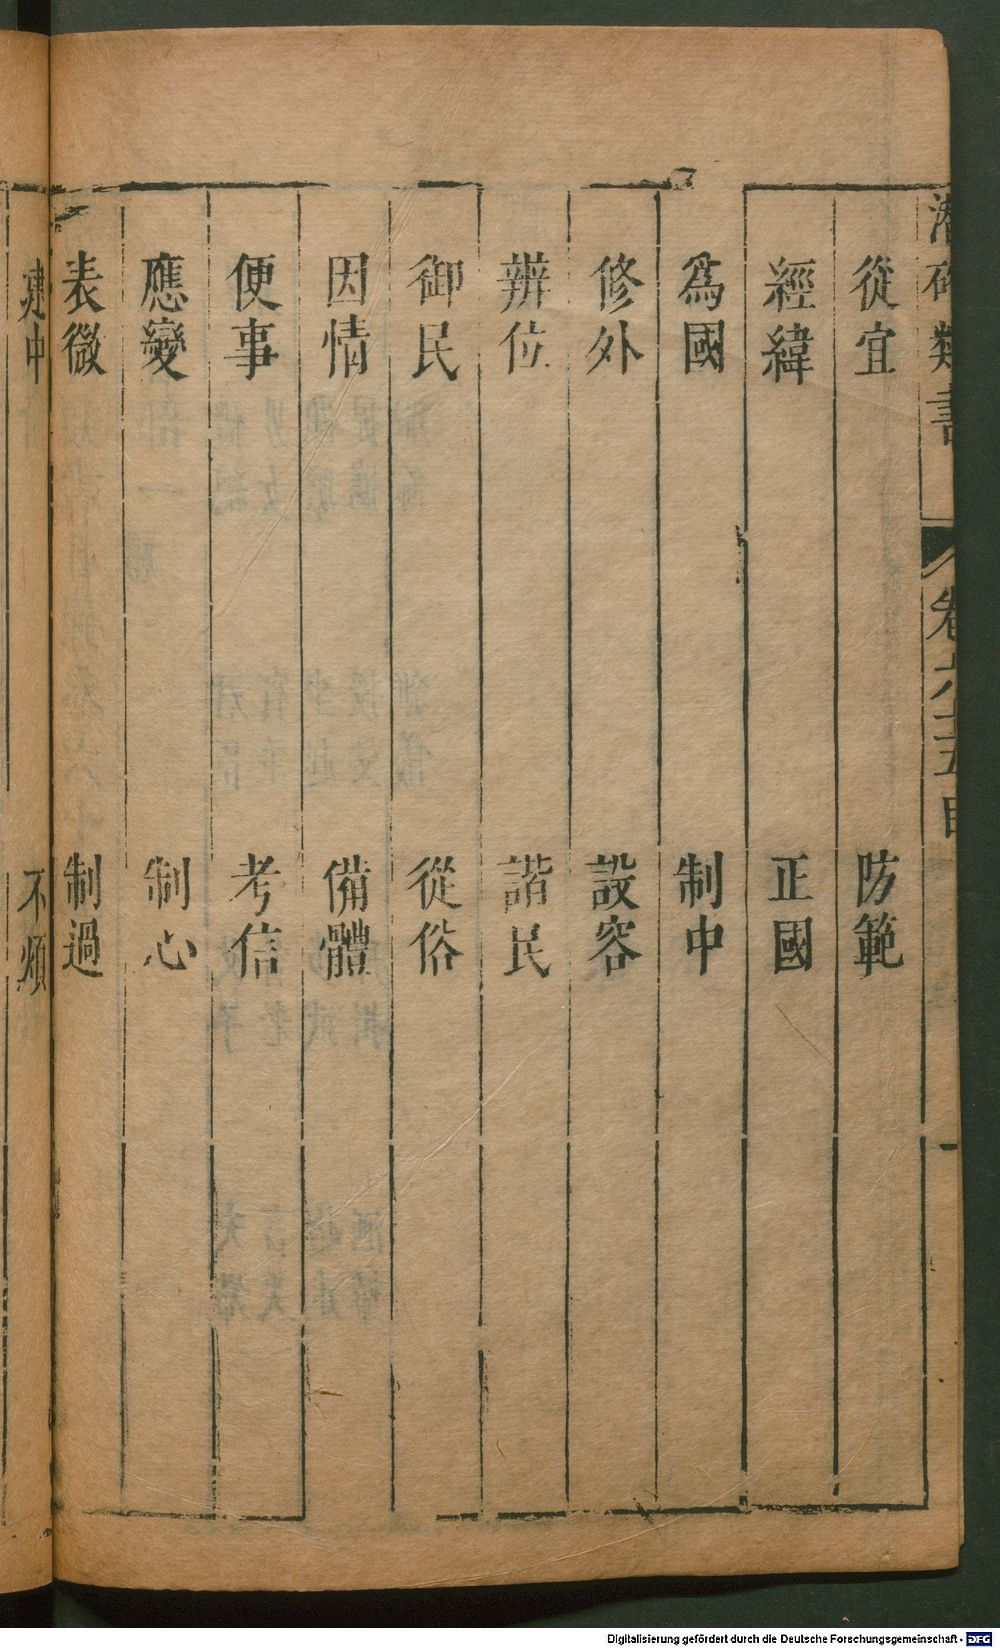 潛確類書 卷六十五目 一
從宜 防範
經緯 正國
為國 制中
修外 設容
辨位 諧民
御民 從俗
因情 備體
便事 考信
應變 制心
表微 制過
建中 不煩
Digitalisierung gefördert durch die Deutsche Forschungsgemeinschaft - DFG